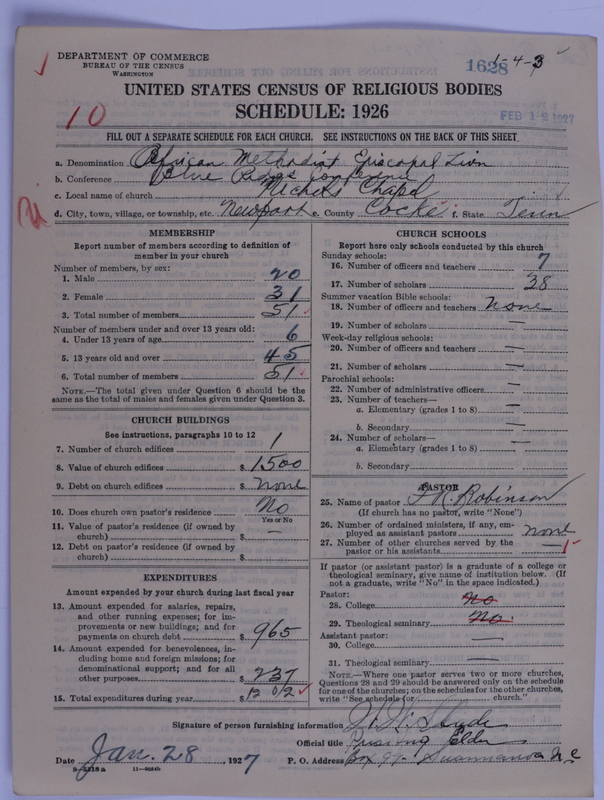 DEPARTMENT OF COMMERCE
BUREAU OF THE CENSUS
WASHINGTON
1628
1-4-3
UNITED STATES CENSUS OF RELIGIOUS BODIES
SCHEDULE: 1926
10
FEB 12 1927
FILL OUT A SEPARATE SCHEDULE FOR EACH CHURCH. SEE INSTRUCTIONS ON THE BACK OF THIS SHEET.
a. Denomination African Methodist Episcopal Zion
b. Conference Blue Ridge Conference
c. Local name of church Chapel
d. City, town, village, or township, etc. Newport e. County Cocke f. State Tenn
MEMBERSHIP
Report number of members according to definition of
member in your church
Number of members, by sex:
1. Male 20
2. Female 31
3. Total number of members 51
Number of members under and over 13 years old:
4. Under 13 years of age 6
5. 13 years old and over 45
6. Total number of members 51
NOTE.—The total given under Question 6 should be
same as the total of males and females given under Question 3.
CHURCH BUILDINGS
See instructions, paragraphs 10 to 12
7. Number of church edifices 1
8. Value of church edifices $ 1500
9. Debt on church edifices $ none
10. Does church own pastor's residence No
Yes or No
11. Value of pastor's residence (if owned by
church) $ —
12. Debt on pastor's residence (if owned by
church) $
EXPENDITURES
Amount expended by your church during last fiscal year
13. Amount expended for salaries, repairs,
and other running expenses; for im-
provements or new buildings; and for
payments on church debt $ 965
14. Amount expended for benevolences, in-
cluding home and foreign missions; for
denominational support; and for all
other purposes $ 237
15. Total expenditures during year $ 1202
CHURCH SCHOOLS
Report here only schools conducted by this church
Sunday schools:
16. Number of officers and teachers 7
17. Number of scholars 38
Summer vacation Bible schools:
18. Number of officers and teachers none
19. Number of scholars —
Week-day religious schools:
20. Number of officers and teachers —
21. Number of scholars —
Parochial schools:
22. Number of administrative officers —
23. Number of teachers—
a. Elementary (grades 1 to 8) —
b. Secondary —
24. Number of scholars—
a. Elementary (grades 1 to 8) —
b. Secondary
PASTOR
25. Name of pastor Robinson
(If church has no pastor, write "None")
26. Number of ordained ministers, if any, em-
ployed as assistant pastors none
27. Number of other churches served by the
pastor or his assistants — 1
If pastor (or assistant pastor) is a graduate of a college or
theological seminary, give name of institution below. (If
not a graduate, write "No" in the space indicated.)
Pastor:
28. College No
29. Theological seminary No
Assistant pastor:
30. College —
31. Theological seminary —
NOTE.—Where one pastor serves two or more churches,
Questions 28 and 29 should be answered only on the schedule
for one of the churches; on the schedules for the other churches,
write "See schedule for church."
Signature of person furnishing information
Official title Presiding Elder
Date Jan. 28, 1927 P. O. Address Box 97 Swannanoa N C